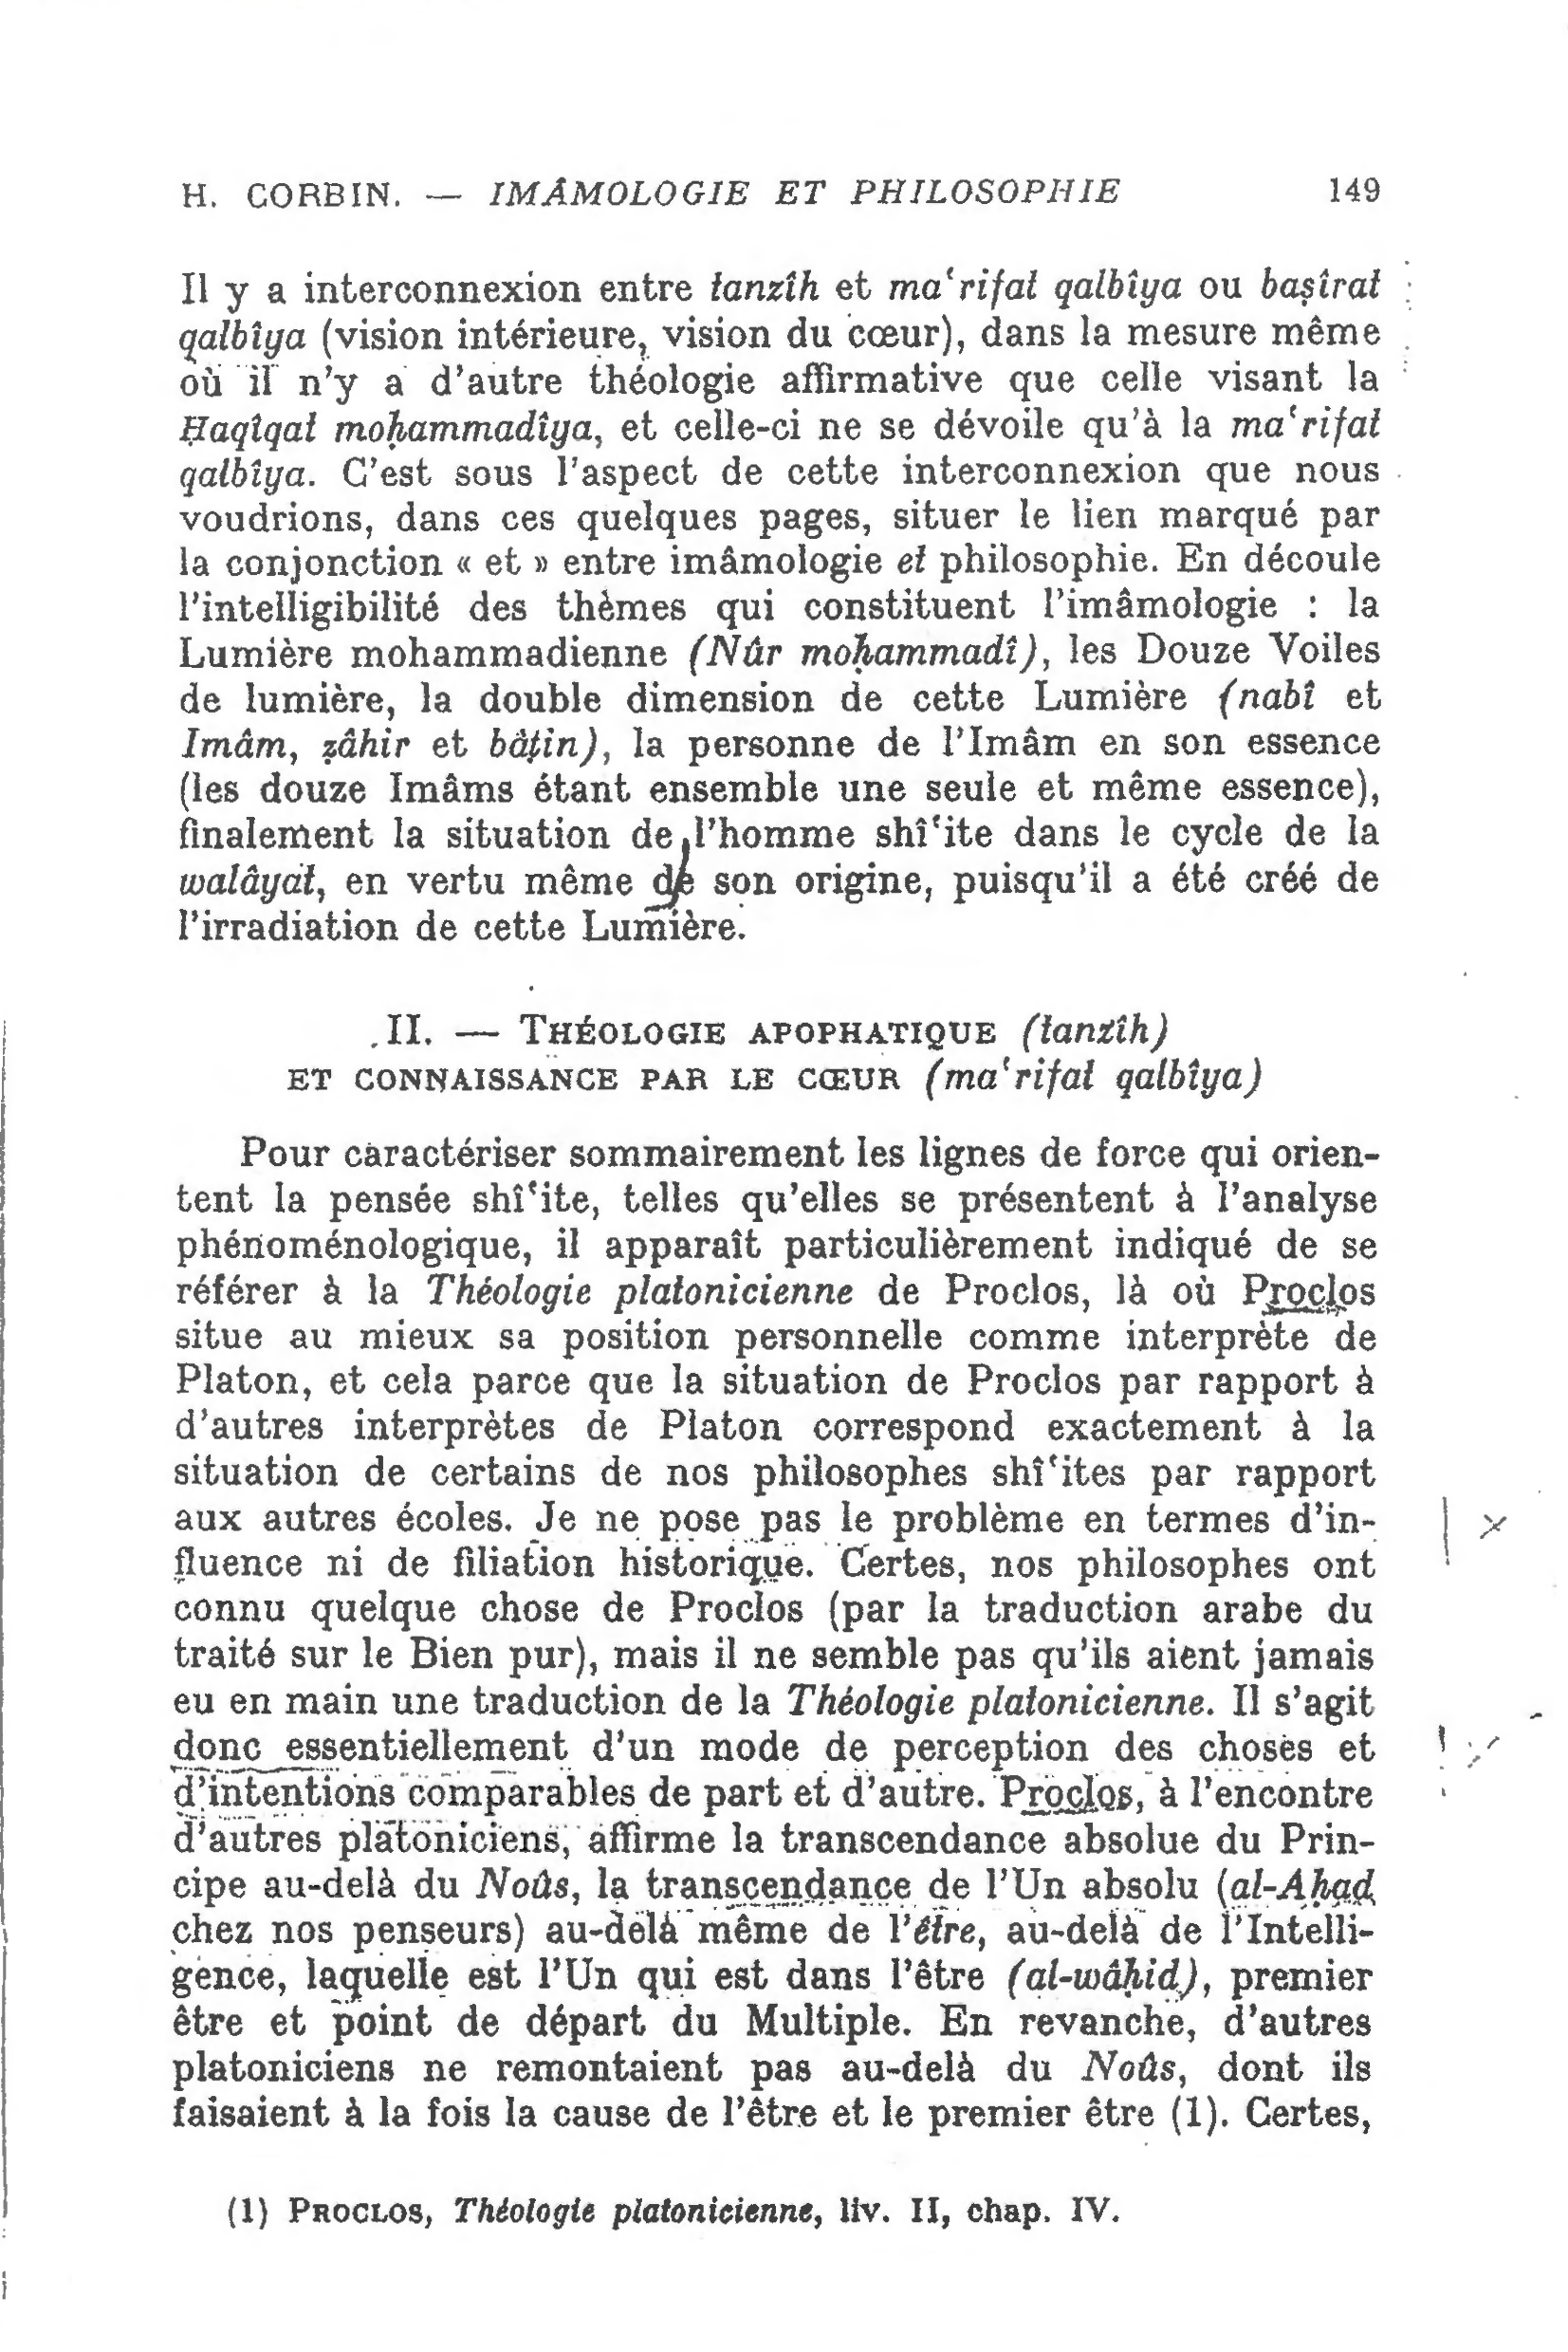 H. CORBIN. — IMÂMOLOGIE ET PHILOSOPHIE 149
Il y a interconnexion entre tanzîh et maʿrifat qalbîya ou baṣîrat
qalbîya (vision intérieure, vision du cœur), dans la mesure même
où il n’y a d’autre théologie affirmative que celle visant la
Ḥaqîqat moḥammadîya, et celle-ci ne se dévoile qu’à la maʿrifat
qalbîya. C’est sous l’aspect de cette interconnexion que nous
voudrions, dans ces quelques pages, situer le lien marqué par
la conjonction « et » entre imâmologie et philosophie. En découle
l’intelligibilité des thèmes qui constituent l’imâmologie : la
Lumière mohammadienne (Nûr moḥammadî), les Douze Voiles
de lumière, la double dimension de cette Lumière (nabî et
Imâm, ẓâhir et bâṭin), la personne de l’Imâm en son essence
(les douze Imâms étant ensemble une seule et même essence),
finalement la situation de l’homme shîʿite dans le cycle de la
walâyat, en vertu même de son origine, puisqu’il a été créé de
l’irradiation de cette Lumière.
II. — THÉOLOGIE APOPHATIQUE (tanzîh)
ET CONNAISSANCE PAR LE CŒUR (maʿrifat qalbîya)
Pour caractériser sommairement les lignes de force qui orien-
tent la pensée shîʿite, telles qu’elles se présentent à l’analyse
phénoménologique, il apparaît particulièrement indiqué de se
référer à la Théologie platonicienne de Proclos, là où Proclos
situe au mieux sa position personnelle comme interprète de
Platon, et cela parce que la situation de Proclos par rapport à
d’autres interprètes de Platon correspond exactement à la
situation de certains de nos philosophes shîʿites par rapport
aux autres écoles. Je ne pose pas le problème en termes d’in-
fluence ni de filiation historique. Certes, nos philosophes ont
connu quelque chose de Proclos (par la traduction arabe du
traité sur le Bien pur), mais il ne semble pas qu’ils aient jamais
eu en main une traduction de la Théologie platonicienne. Il s’agit
donc essentiellement d’un mode de perception des choses et
d’intentions comparables de part et d’autre. Proclos, à l’encontre
d’autres platoniciens, affirme la transcendance absolue du Prin-
cipe au-delà du Noûs, la transcendance de l’Un absolu (al-Aḥad
chez nos penseurs) au-delà même de l’être, au-delà de l’Intelli-
gence, laquelle est l’Un qui est dans l’être (al-wâḥid), premier
être et point de départ du Multiple. En revanche, d’autres
platoniciens ne remontaient pas au-delà du Noûs, dont ils
faisaient à la fois la cause de l’être et le premier être (1). Certes,
(1) PROCLOS, Théologie platonicienne, liv. II, chap. IV.